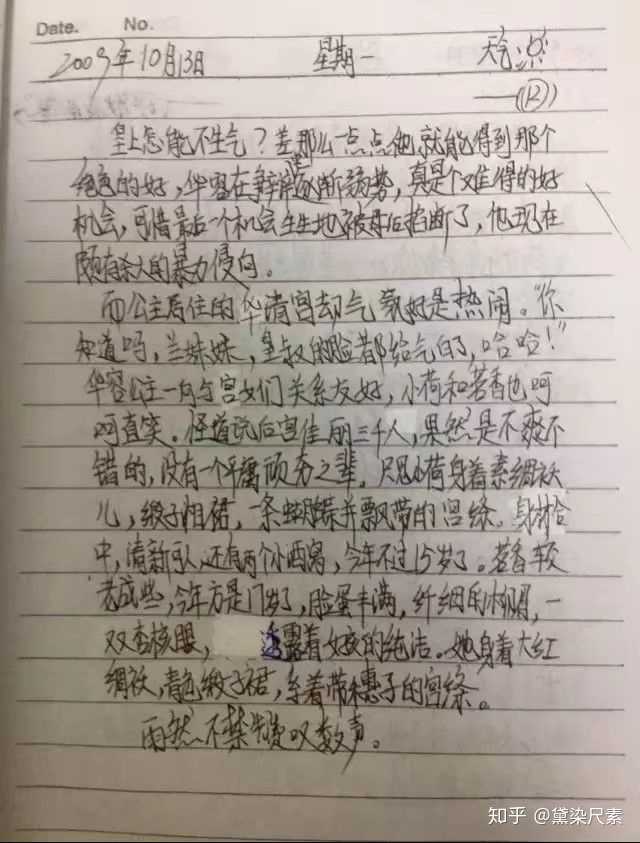 Date. No.
2009年10月13日 星期一 天气
(12)
皇上怎能不生气？差那么一点点他就能得到那个
绝色的好，华容在逐渐弱势，真是个难得的好
机会，可惜最后一个机会生生地被母后掐断了，他现在
颇有杀人的暴力侵向。
而公主居住的华清宫却气氛好是热闹。“你
知道吗，兰妹妹，皇叔的脸都给气白了，哈哈！”
华容公主一向与宫女们关系友好，小荷和茗香也呵
呵直笑。怪道说后宫佳丽三千人，果然是不爽不
错的，没有一个平庸之辈。只见小荷身着素绸袄
儿，缎子相裙，一条蝴蝶并飘带的宫绦。身材合
中，清新可人，还有两个小酒窝，今年不过15岁了。茗香较
老成些，今年方是17岁，脸蛋丰满，纤细的柳眉，一
双杏核眼，透露着女孩的纯洁。她身着大红
绸袄，青色缎子裙，系着带穗子的宫绦。
雨然不禁赞叹数声。
知乎 @黛染尺素